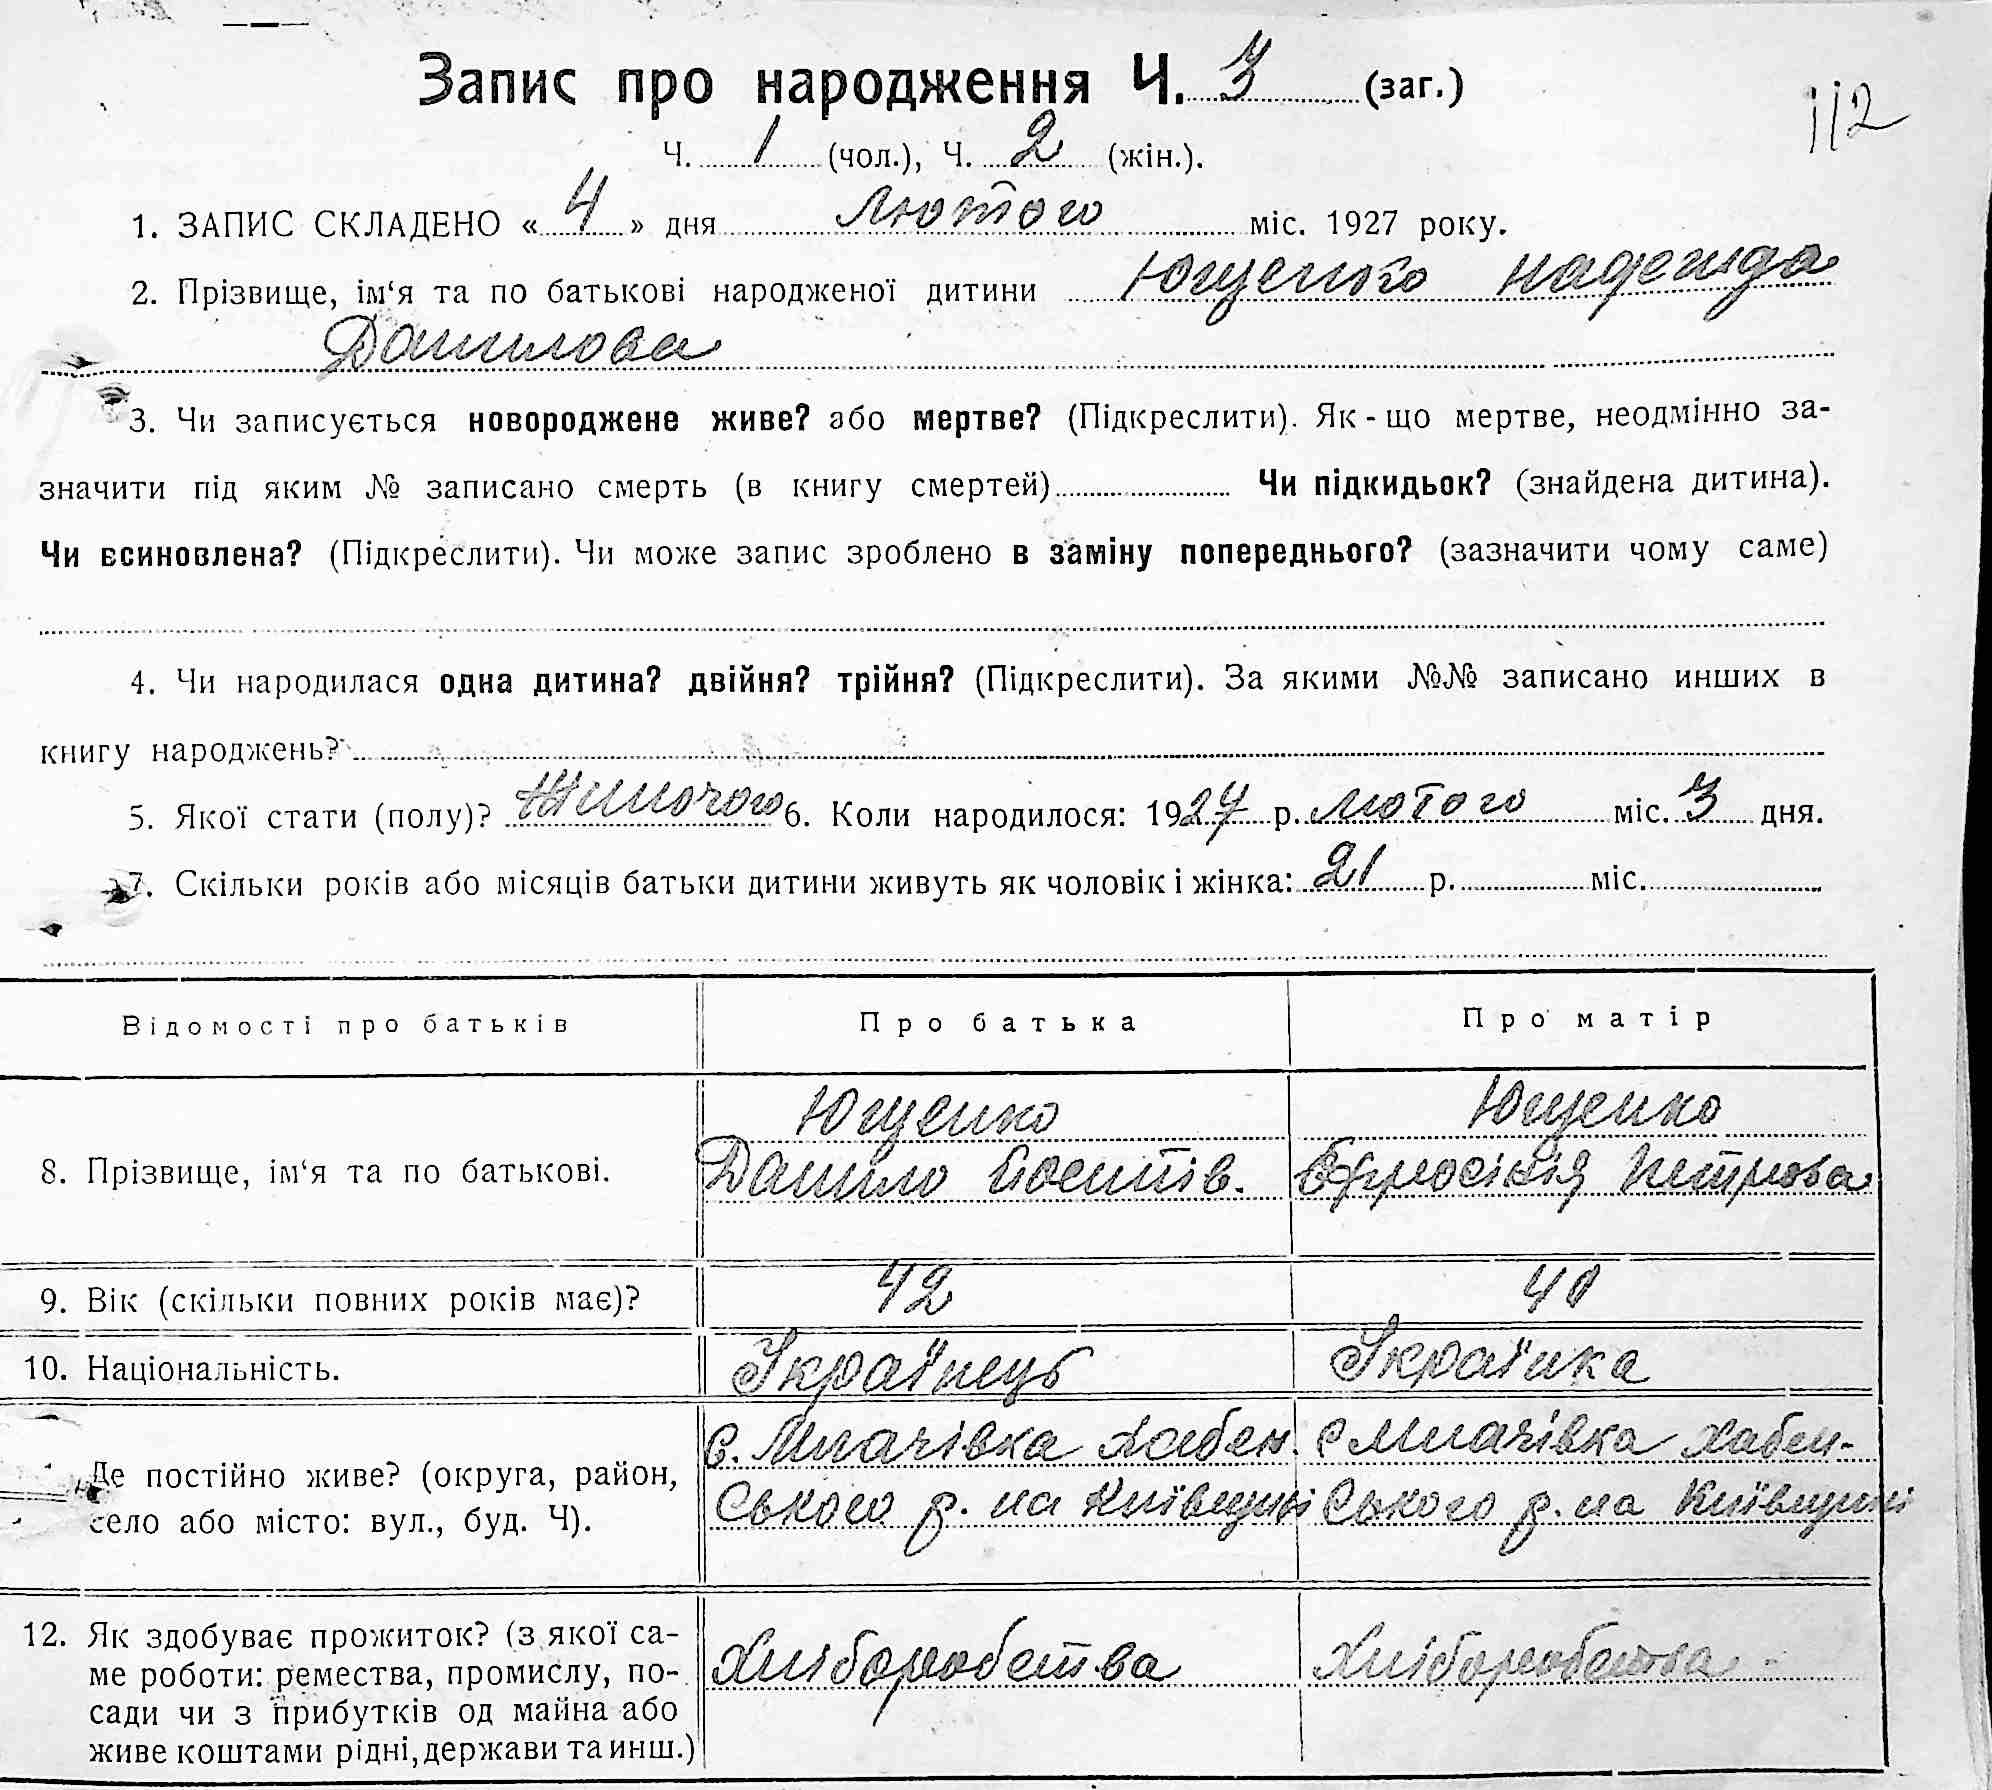 Запис про народження Ч. 3 (заг.)
112
Ч. 1 (чол.), Ч. 2 (жін.).
1. ЗАПИС СКЛАДЕНО « 4 » дня лютого міс. 1927 року.
2. Прізвище, ім‘я та по батькові народженої дитини Ющенко Надежда
Данилова
3. Чи записується новороджене живе? або мертве? (Підкреслити). Як-що мертве, неодмінно за-
значити під яким № записано смерть (в книгу смертей) Чи підкидьок? (знайдена дитина).
Чи всиновлена? (Підкреслити). Чи може запис зроблено в заміну попереднього? (зазначити чому саме)
4. Чи народилася одна дитина? двійня? трійня? (Підкреслити). За якими №№ записано инших в
книгу народжень?
5. Якої стати (полу)? Жиночого 6. Коли народилося: 1927 р. лютого міс. 3 дня.
7. Скільки років або місяців батьки дитини живуть як чоловік і жінка: 21 р. міс.
Відомості про батьків Про батька Про матір
8. Прізвище, ім‘я та по батькові.
Ющенко
Данило Йосипів.
Ющенко
Єфросінія Петрова
9. Вік (скільки повних років має)? 42 40
10. Національність. Українець Українка
Де постійно живе? (округа, район,
село або місто: вул., буд. Ч).
с. Мпачівка Хабен.
ського р. на Київщині
с Млачівка Хабен-
ського р. на Київщині
12. Як здобуває прожиток? (з якої са-
ме роботи: ремества, промислу, по-
сади чи з прибутків од майна або
живе коштами рідні, держави та инш.)
Хліборобства
Хліборобства